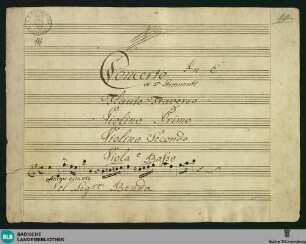 Concerto In E
a 5 Stromenti
Flauto Traverso
Violino Primo
Violino Secondo
Viola e Basso
del Sigre Benda
BLB BADISCHE
LANDESBIBLIOTHEK
Baden-Württemberg